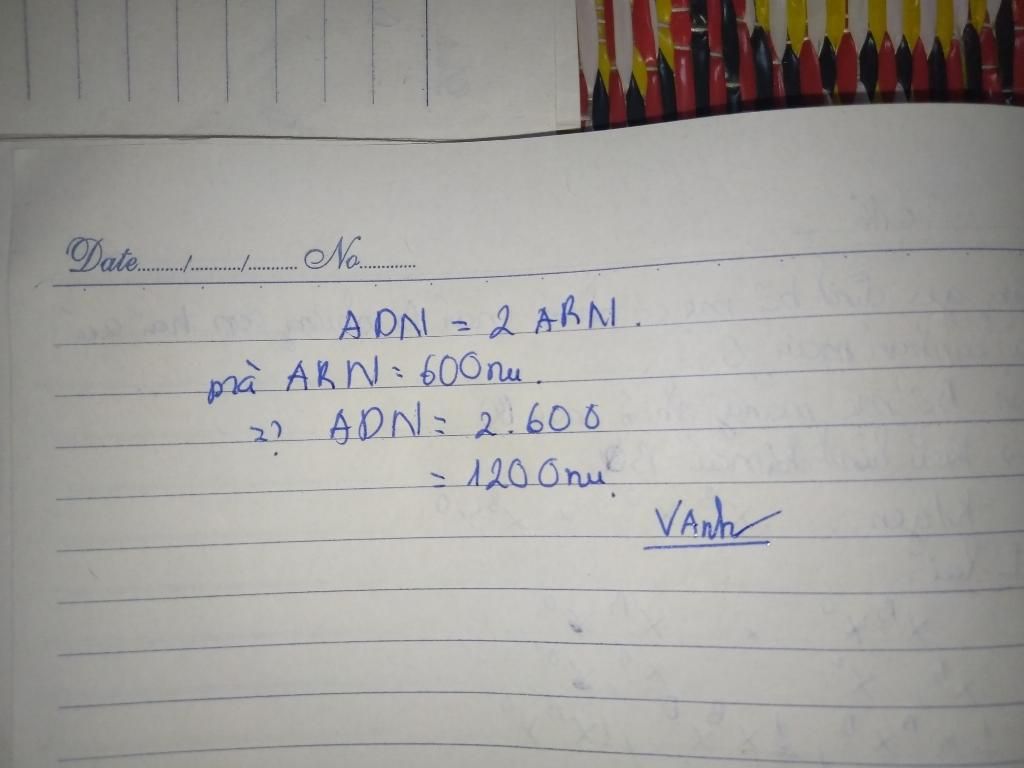 Date........../.........../........... No.............
ADN = 2 ARN.
mà ARN = 600nu.
=> ADN = 2.600
= 1200nu.
VAnh